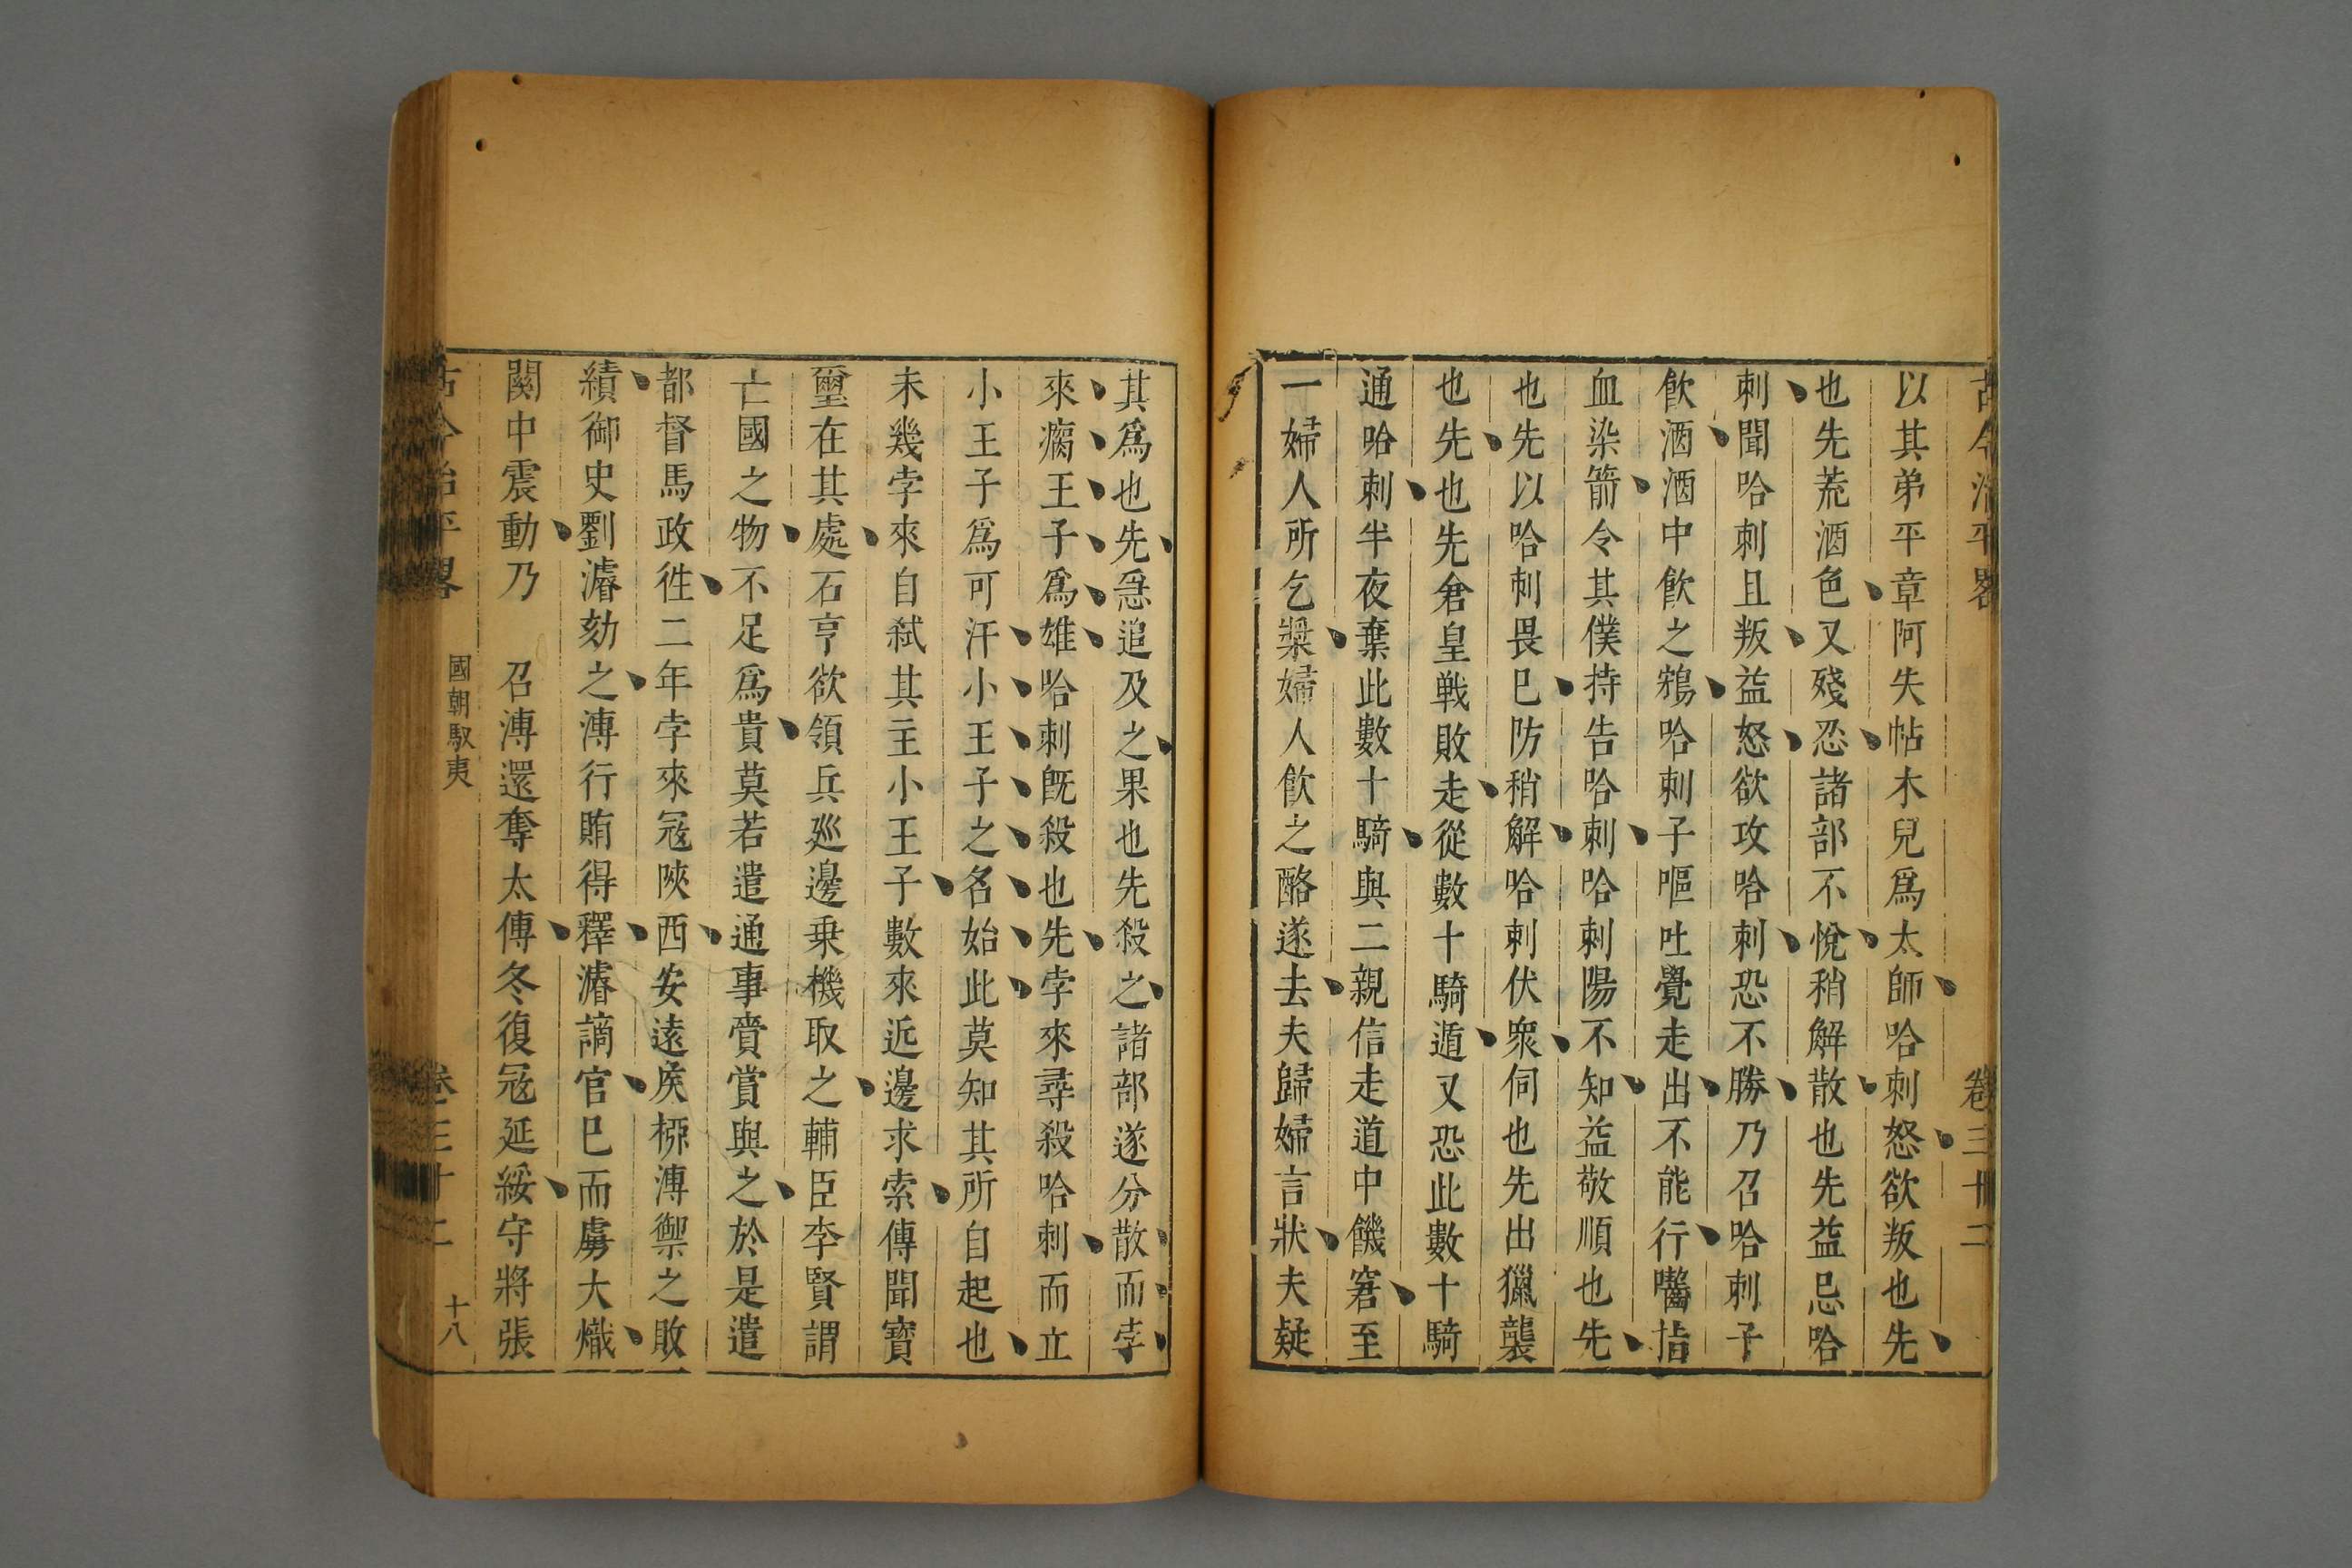 古今治平畧 卷三十二
以其弟平章阿失帖木兒爲太師哈刺怒欲叛也先
也先荒酒色又殘忍諸部不悅稍解散也先益忌哈
刺聞哈刺且叛益怒欲攻哈刺恐不勝乃召哈刺子
飮酒酒中飮之鴆哈刺子嘔吐覺走出不能行囓指
血染箭令其僕持告哈刺哈刺陽不知益敬順也先
也先以哈刺畏巳防稍解哈刺伏衆伺也先出獵襲
也先也先倉皇戦敗走從數十騎遁又恐此數十騎
通哈刺半夜棄此數十騎與二親信走道中饑窘至
一婦人所乞漿婦人飮之酪遂去夫歸婦言狀夫疑
其爲也先急追及之果也先殺之諸部遂分散而孛
來瘸王子爲雄哈刺旣殺也先孛來尋殺哈刺而立
小王子爲可汗小王子之名始此莫知其所自起也
未幾孛來自弑其主小王子數來近邊求索傳聞寶
璽在其處石亨欲領兵廵邊乗機取之輔臣李賢謂
亡國之物不足爲貴莫若遣通事賫賞與之於是遣
都督馬政徃二年孛來冦陜西安遠矦桺溥禦之敗
績御史劉濬劾之溥行賄得釋濬謫官巳而虜大熾
関中震動乃 召溥還奪太傳冬復冦延綏守將張
古今治平畧 國朝馭夷 卷三十二 十八